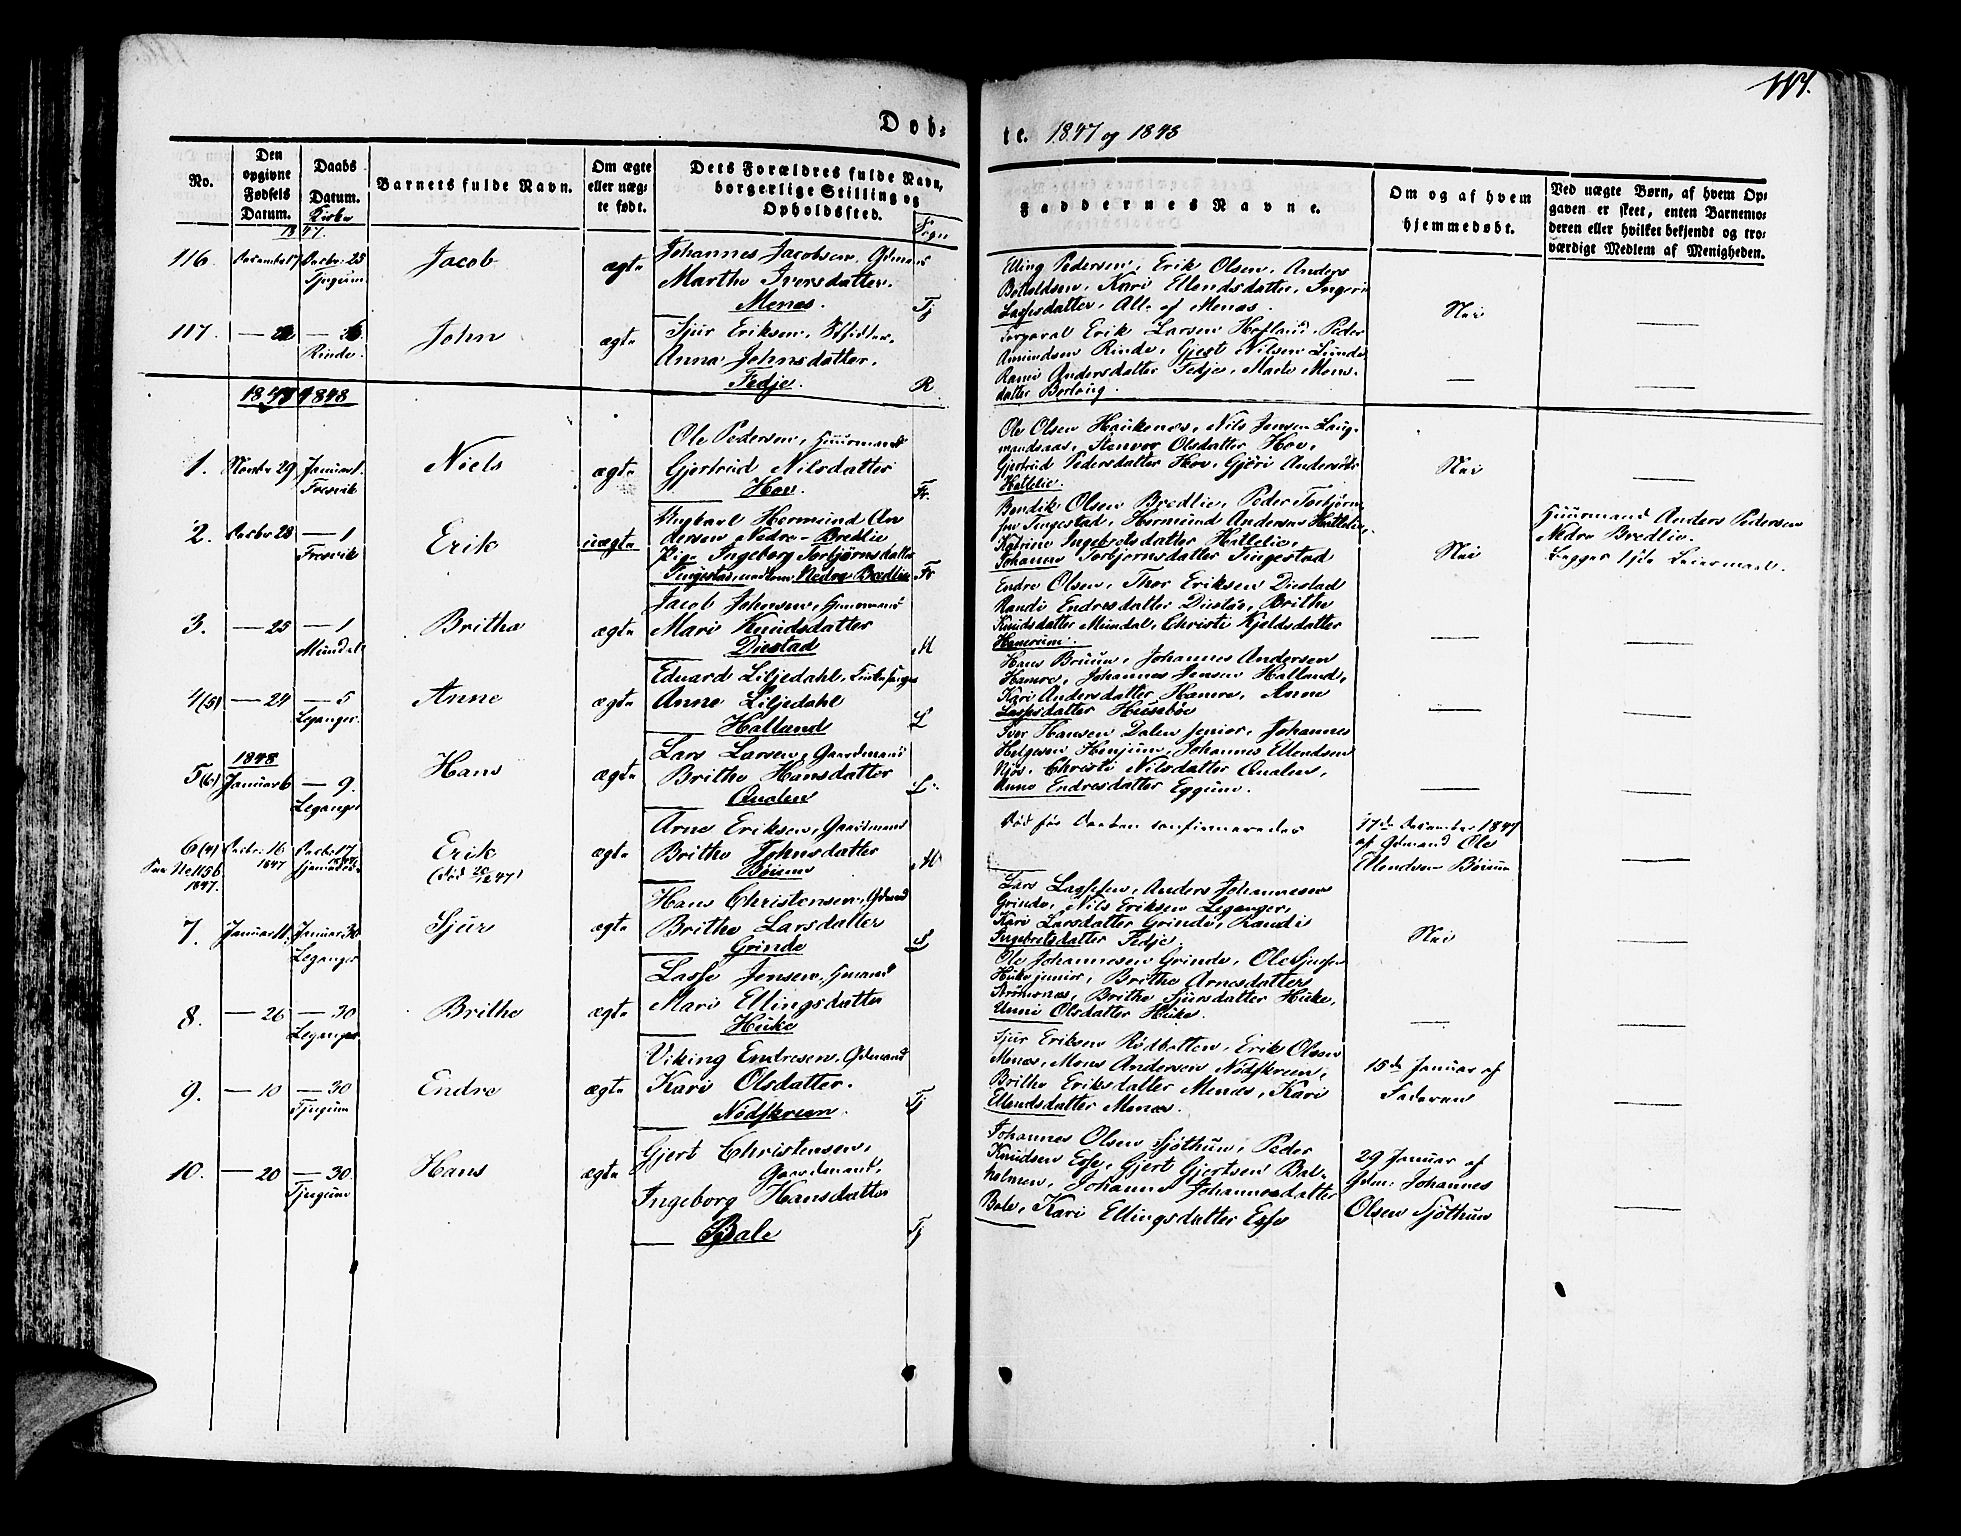 117.
Døb-
te. 1847 og 1848
No.
Den opgivne Fødsels Datum.
Daabs Datum. Kirke
Barnets fulde Navn.
Om ægte eller uæg-te født.
Dets Forældres fulde Navn, borgerlige Stilling og Opholdssted.
Sogn
Faddernes Navne.
Om og af hvem hjemmedøbt.
Ved uægte Børn, af hvem Op-
gaven er skeet, enten Barnemo-
deren eller hvilket bekjendt og tro-
værdigt Medlem af Menigheden.
1847.
116. December 17 Decbr. 25 Tjugum Jacob ægte
Johannes Jacobsen, Gdmand
Marthe Iversdatter.
Menæs. Tj
Elling Pedersen, Erik Olsen, Anders
Botholdsen, Kari Ellendsdatter, Ingeri
Lassesdatter, Alle af Menæs.
Nei
117. Rinde. John ægte
Sjur Eriksen,
Anna Johnsdatter,
Fedje. R
Corporal Erik Larsen Hofland, Peder
Amundsen Rinde, Gjest Nilsen Lunde
Andersdatter Fedje, Marte Mons-
datter
1848
1. Novbr 29 Januar 1. Fresvik Niels ægte
Ole Pedersen, Huusmand
Gjertrud Nilsdatter
Hov. Fr.
Ole Olsen Haukenæs, Nils Jensen Laug-
mandsaas, Stenvor Olsdatter Hov,
Gjertrud Pedersdatter Hov, Gjøri Andersdr
Hallelie.
Nei
2. Decbr 25 — 1 Fresvik Erik uægte
Ungkarl Hermund An
dersen Nedre-Bredlie
Pige Ingeborg Torbjørnsdatter
Tingestad, Nedre Bredlie Fr
Bendik Olsen Bredlie, Peder Torbjørn-
sen Tingestad, Hermund Andersen Hallelie,
Katrine Ingebretsdatter Hallelie,
Johanne Torbjørnsdatter Tingestad
Nei
Huusmand Anders Pedersen
Nedre Bredlie.
Begges 1ste Leiermaal.
3. — 25 — 1 Mundal Britha ægte
Jacob Johnsen, Huusmand
Mari Knudsdatter
Diestad M
Endre Olsen, Thor Eriksen Diestad
Randi Endresdatter Diestad, Brithe
Knudsdatter Mundal, Christi Kjeldsdatter
Hamrum.
4 (5) — 24 — 5 Leganger. Anne ægte
Eduard Liljedahl,
Anne Liljedahl
Halland L
Hans Bruun, Johannes Andersen
Hamre, Johannes Jensen Halland,
Kari Andersdatter Hamre, Anne
Lassesdatter Husebøe
1848
5 (6) Januar 6 — 9. Leganger Hans ægte
Lars Larsen, Gaardmand
Brithe Hansdatter
Qualen L.
Iver Hansen Dalen junior, Johannes
Helgesen Henjum, Johannes Ellendsen
Njøs, Christi Nilsdatter Qualen,
Anne Endresdatter Eggum.
6 (4) Decbr. 16 1847 Decbr 17 1847 hjemmedøbt Erik ægte
1847. (død 20/12 47)
Arne Eriksen, Gaardmand
Brithe Johnsdatter
Bøium M
Død før Daaben confirmeredes
17de December 1847
af Gdmand Ole
Ellendsen Bøium
7. Januar 11. Januar 30 Leganger Sjur ægte
Hans Christensen, Gdmand
Brithe Larsdatter
Grinde L
Lars Lassesen, Anders Johannesen
Grinde, Nils Eriksen Leganger,
Kari Larsdatter Grinde, Randi
Ingebretsdatter Fedje.
Nei
8. — 26 — 30 Leganger Brithe ægte
Lasse Jensen, Hmand
Mari Ellingsdatter
Huke
Ole Johannesen Grinde, Ole Sjursen
Huke junior, Brithe Arnesdatter
Strømnæs, Brithe Sjursdatter Huke,
Unni Olsdatter Huke.
9. — 10 — 30 Tjugum Endre ægte
Viking Endresen, Gdmand
Kari Olsdatter.
Nødskreen. Tj
Sjur Eriksen Rødbotten, Erik Olsen
Menæs, Mons Andersen Nødskreen,
Brithe Eriksdatter Menæs, Kari
Ellendsdatter Menæs.
15de Januar af
Faderen
10. — 20 — 30. Tjugum Hans ægte
Gjert Christensen,
Gaardmand,
Ingeborg Hansdatter
Bale Tj
Johannes Olsen Sjøthun, Peder
Knudsen Esse, Gjert Gjertsen Bal-
holmen, Johanne Johannesdatter
Bale, Kari Ellingsdatter Esse
29 Januar af
Gdm: Johannes
Olsen Sjøthun